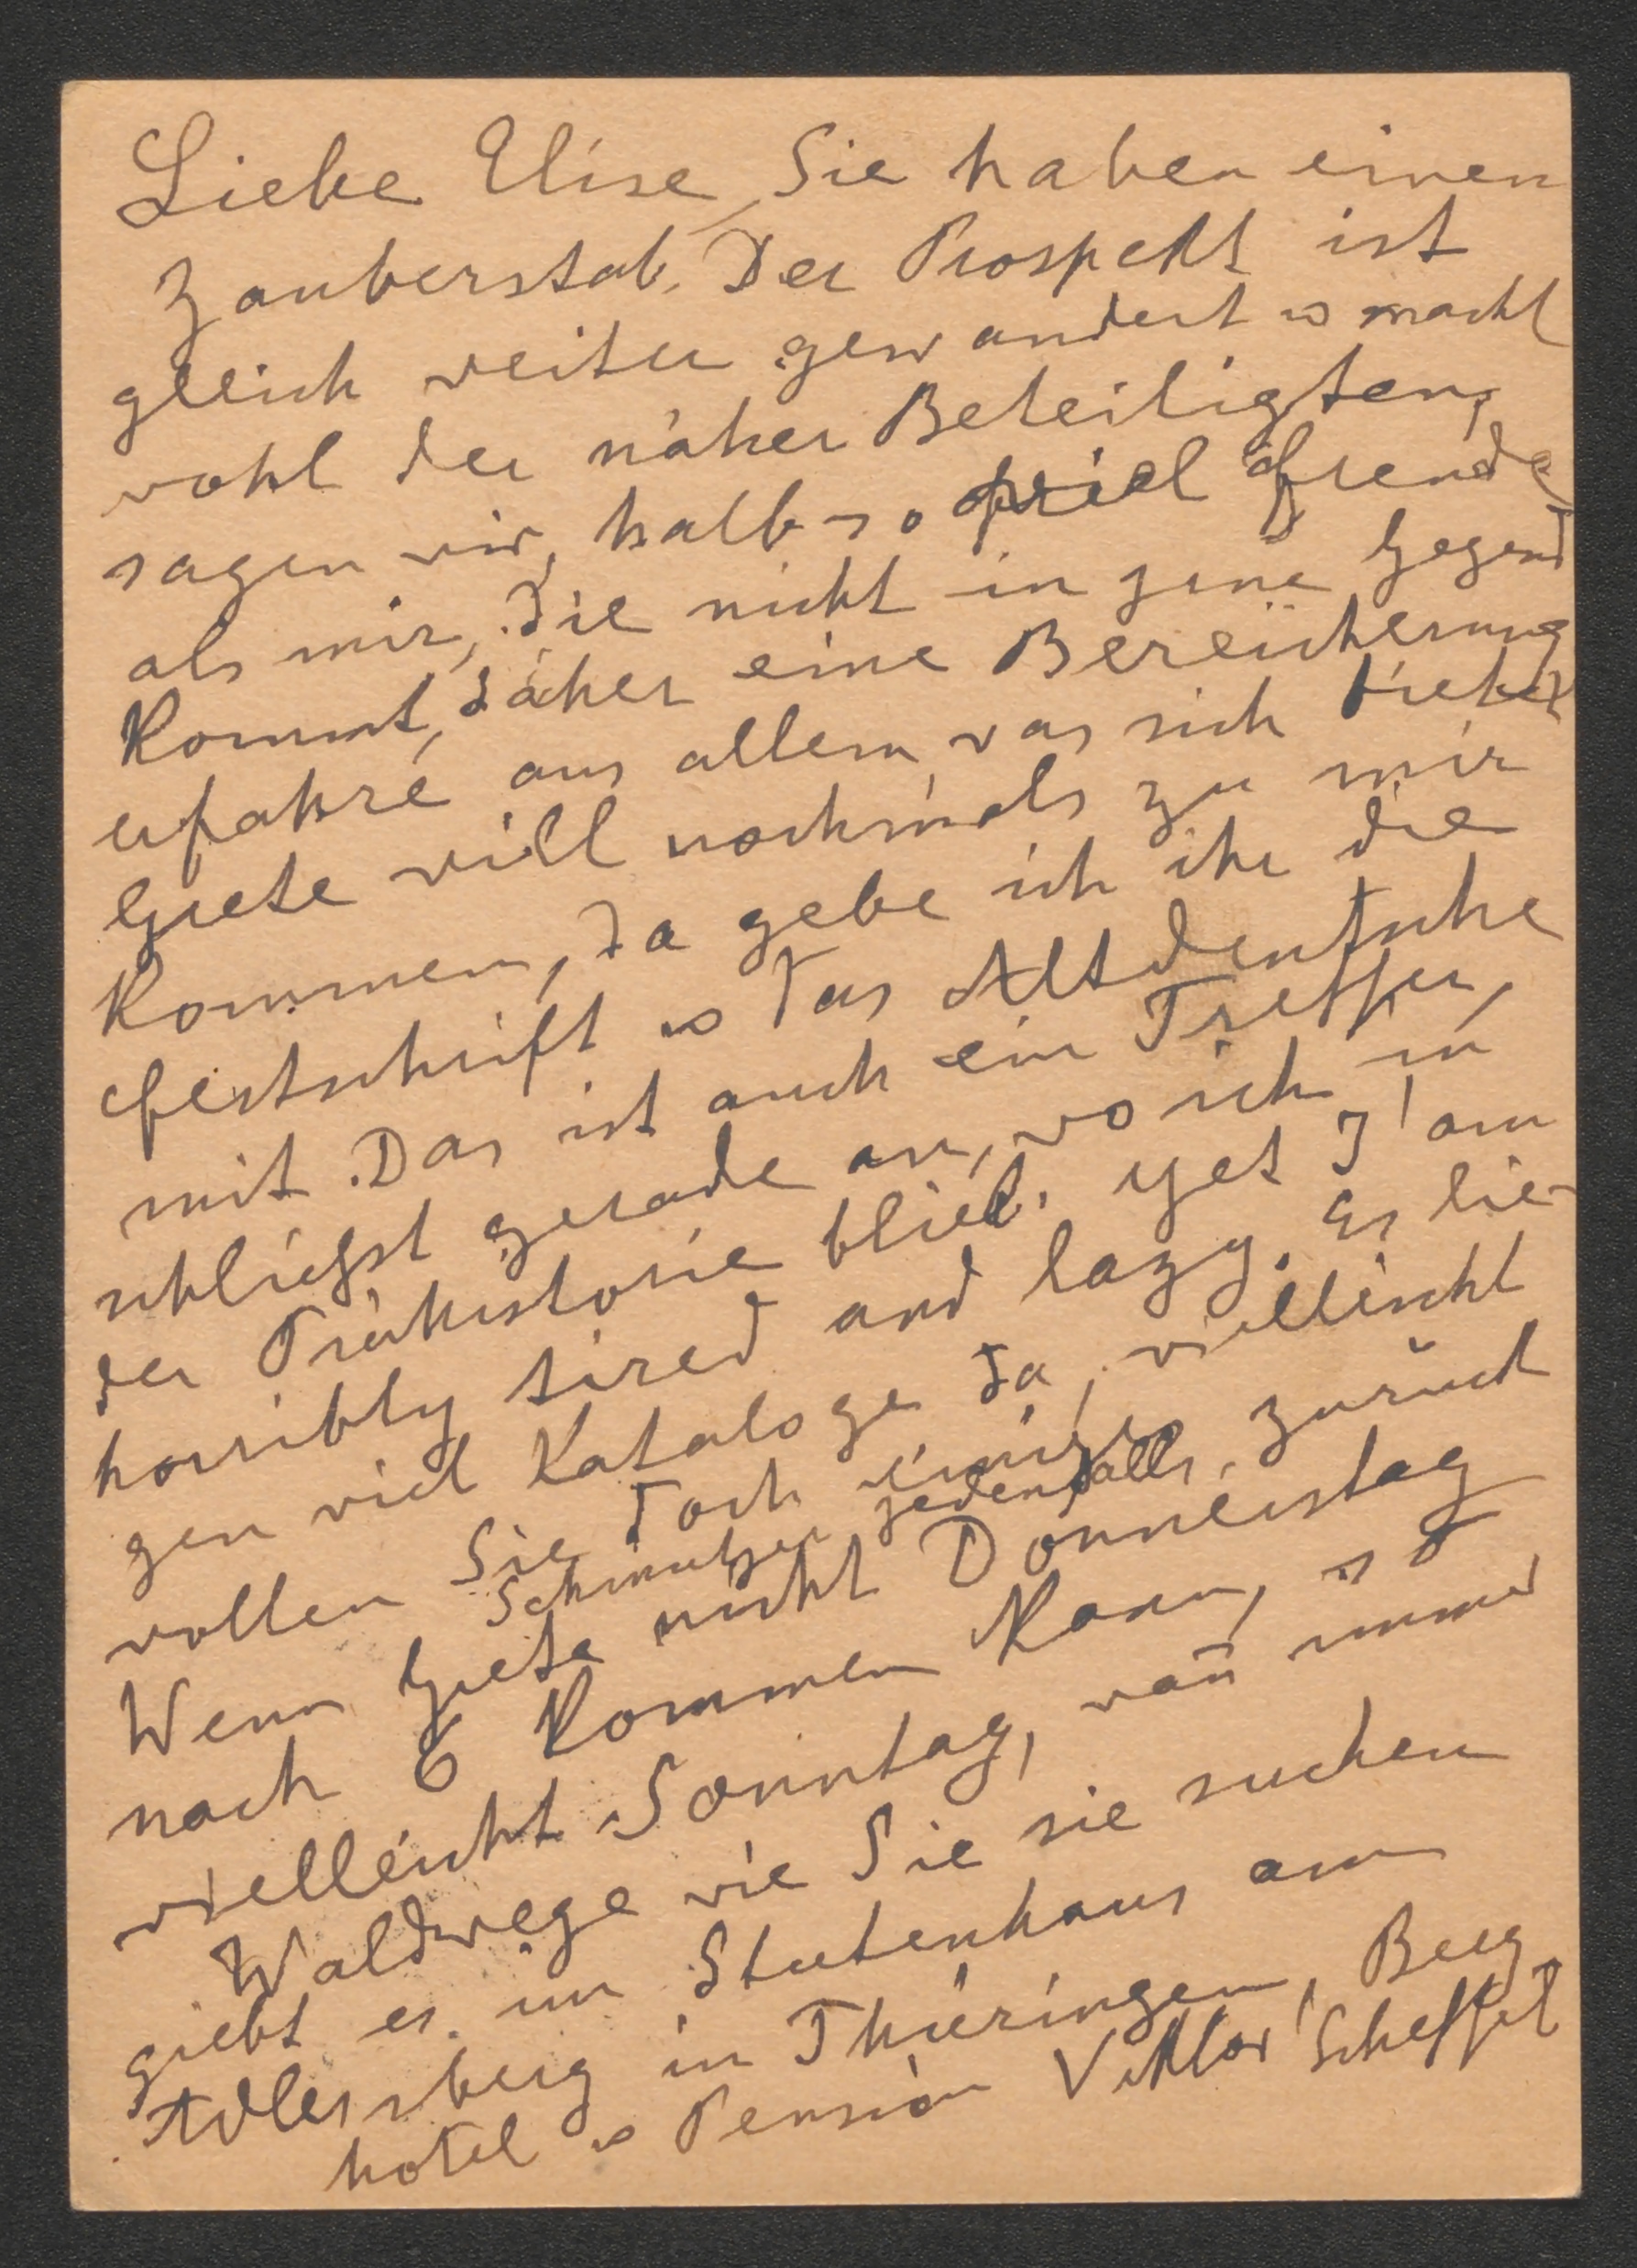 Liebe Elise, Sie haben einen
Zauberstab. Der Prospekt ist
gleich weiter gewandert u macht
wohl der näher Beteiligten,
sagen wir, halb so viel Freude
als mir, die nicht in jene Gegend
kommt, daher eine Bereicherung
erfahre aus allem was sich bietet
Grete will nochmals zu mir
kommen, da gebe ich ihr die
Festschrift u das Altdeutsche
mit. Das ist auch ein Treffer,
schließt gerade an, wo ich in
der Prähistorie blieb. Yet I'am
horribly tired and lazy. Es lie-
gen viel Kataloge da, vielleicht
wollen Sie doch einige
Schmutzer jedenfalls zurück
Wenn Grete nicht Donnerstag
nach 6 kommen kann, so
vielleicht Sonntag, wañ immer
Waldwege wie Sie sie suchen
giebt es im Stutenhaus am
Adlersberg in Thüringen, Berg
hotel u Pension Viktor Scheffel